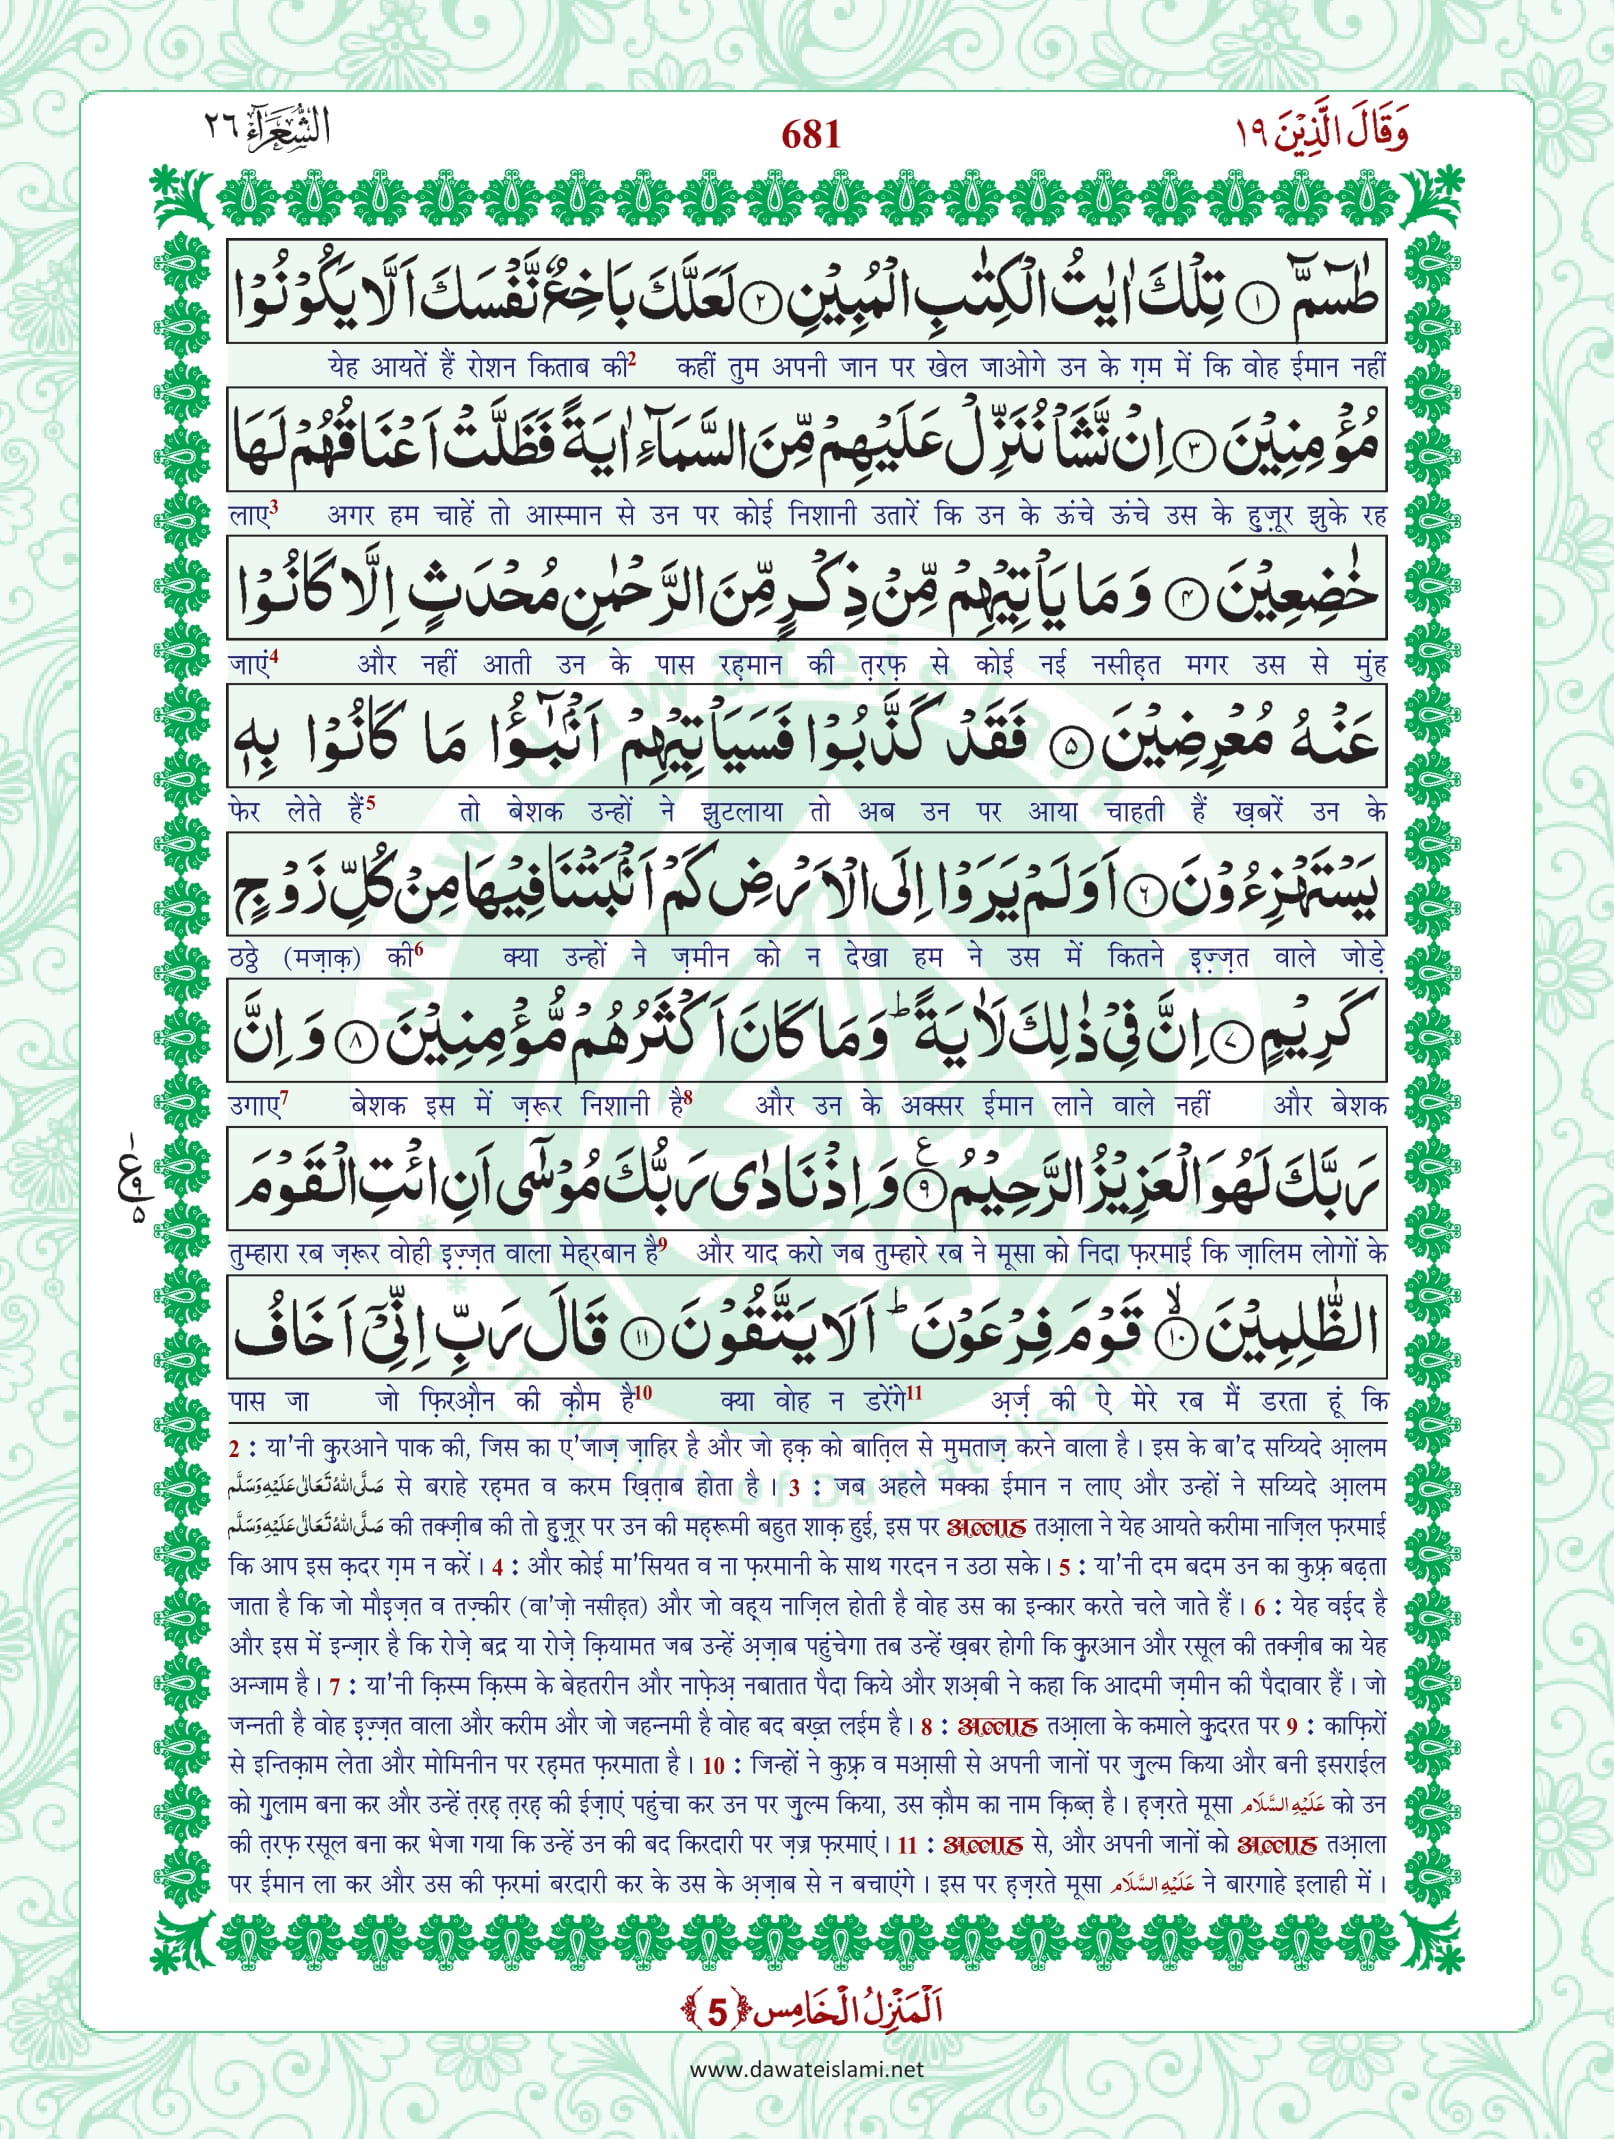 وَقَالَ الَّذِيْنَ ١٩
681
الشُّعَرَآء ٢٦
طٰسٓمّٓ ﴿١﴾ تِلْكَ اٰيٰتُ الْكِتٰبِ الْمُبِيْنِ ﴿٢﴾ لَعَلَّكَ بَاخِعٌ نَّفْسَكَ اَلَّا يَكُوْنُوْا
येह आयतें हैं रोशन किताब की2 कहीं तुम अपनी जान पर खेल जाओगे उन के ग़म में कि वोह ईमान नहीं
مُؤْمِنِيْنَ ﴿٣﴾ اِنْ نَّشَاْ نُنَزِّلْ عَلَيْهِمْ مِّنَ السَّمَآءِ اٰيَةً فَظَلَّتْ اَعْنَاقُهُمْ لَهَا
लाए3 अगर हम चाहें तो आस्मान से उन पर कोई निशानी उतारें कि उन के ऊंचे ऊंचे उस के हुज़ूर झुके रह
خٰضِعِيْنَ ﴿٤﴾ وَمَا يَاْتِيْهِمْ مِّنْ ذِكْرٍ مِّنَ الرَّحْمٰنِ مُحْدَثٍ اِلَّا كَانُوْا
जाएं4 और नहीं आती उन के पास रह़मान की त़रफ़ से कोई नई नसीह़त मगर उस से मुंह
عَنْهُ مُعْرِضِيْنَ ﴿٥﴾ فَقَدْ كَذَّبُوْا فَسَيَاْتِيْهِمْ اَنْۢبٰٓؤُا مَا كَانُوْا بِهٖ
फेर लेते हैं5 तो बेशक उन्हों ने झुटलाया तो अब उन पर आया चाहती हैं ख़बरें उन के
يَسْتَهْزِءُوْنَ ﴿٦﴾ اَوَلَمْ يَرَوْا اِلَى الْاَرْضِ كَمْ اَنْۢبَتْنَا فِيْهَا مِنْ كُلِّ زَوْجٍ
ठठ्ठे (मज़ाक़) की6 क्या उन्हों ने ज़मीन को न देखा हम ने उस में कितने इज़्ज़त वाले जोड़े
كَرِيْمٍ ﴿٧﴾ اِنَّ فِيْ ذٰلِكَ لَاٰيَةً ؕ وَمَا كَانَ اَكْثَرُهُمْ مُّؤْمِنِيْنَ ﴿٨﴾ وَاِنَّ
उगाए7 बेशक इस में ज़रूर निशानी है8 और उन के अक्सर ईमान लाने वाले नहीं और बेशक
رَبَّكَ لَهُوَ الْعَزِيْزُ الرَّحِيْمُ ﴿٩﴾ ع وَاِذْ نَادٰى رَبُّكَ مُوْسٰٓى اَنِ ائْتِ الْقَوْمَ
١ ع ٩ ٥
तुम्हारा रब ज़रूर वोही इज़्ज़त वाला मेह्रबान है9 और याद करो जब तुम्हारे रब ने मूसा को निदा फ़रमाई कि ज़ालिम लोगों के
الظّٰلِمِيْنَ ﴿١٠﴾ ۙ قَوْمَ فِرْعَوْنَ ؕ اَلَا يَتَّقُوْنَ ﴿١١﴾ قَالَ رَبِّ اِنِّيْۤ اَخَافُ
पास जा जो फ़िरऔ़न की क़ौम है10 क्या वोह न डरेंगे11 अ़र्ज़ की ऐ मेरे रब मैं डरता हूं कि
2 : या'नी कु़रआने पाक की, जिस का ए'जाज़ ज़ाहिर है और जो ह़क़ को बात़िल से मुमताज़ करने वाला है। इस के बा'द सय्यिदे आ़लम
صَلَّى اللهُ تَعَالٰى عَلَيْهِ وَسَلَّم से बराहे रह़मत व करम ख़ित़ाब होता है। 3 : जब अहले मक्का ईमान न लाए और उन्हों ने सय्यिदे आ़लम
صَلَّى اللهُ تَعَالٰى عَلَيْهِ وَسَلَّم की तक्ज़ीब की तो हुज़ूर पर उन की मह़रूमी बहुत शाक़ हुई, इस पर अल्लाह तआ़ला ने येह आयते करीमा नाज़िल फ़रमाई
कि आप इस क़दर ग़म न करें। 4 : और कोई मा'सियत व ना फ़रमानी के साथ गरदन न उठा सके। 5 : या'नी दम बदम उन का कुफ़्र बढ़ता
जाता है कि जो मौइज़त व तज़्कीर (वा'ज़ो नसीह़त) और जो वह़्य नाज़िल होती है वोह उस का इन्कार करते चले जाते हैं। 6 : येह वई़द है
और इस में इन्ज़ार है कि रोज़े बद्र या रोज़े क़ियामत जब उन्हें अ़ज़ाब पहुंचेगा तब उन्हें ख़बर होगी कि कु़रआन और रसूल की तक्ज़ीब का येह
अन्जाम है। 7 : या'नी क़िस्म क़िस्म के बेहतरीन और नाफ़ेअ़ नबातात पैदा किये और शअ़बी ने कहा कि आदमी ज़मीन की पैदावार हैं। जो
जन्नती है वोह इज़्ज़त वाला और करीम और जो जहन्नमी है वोह बद बख़्त लईम है। 8 : अल्लाह तआ़ला के कमाले कु़दरत पर 9 : काफ़िरों
से इन्तिक़ाम लेता और मोमिनीन पर रह़मत फ़रमाता है। 10 : जिन्हों ने कुफ़्र व मआ़सी से अपनी जानों पर ज़ुल्म किया और बनी इसराईल
को ग़ुलाम बना कर और उन्हें त़रह़ त़रह़ की ईज़ाएं पहुंचा कर उन पर ज़ुल्म किया, उस क़ौम का नाम क़िब्त़ है। ह़ज़रते मूसा عَلَيْهِ السَّلَام को उन
की त़रफ़ रसूल बना कर भेजा गया कि उन्हें उन की बद किरदारी पर ज़ज्र फ़रमाएं। 11 : अल्लाह से, और अपनी जानों को अल्लाह तआ़ला
पर ईमान ला कर और उस की फ़रमां बरदारी कर के उस के अ़ज़ाब से न बचाएंगे। इस पर ह़ज़रते मूसा عَلَيْهِ السَّلَام ने बारगाहे इलाही में।
اَلْمَنْزِلُ الْخَامِس ﴿5﴾
www.dawateislami.net